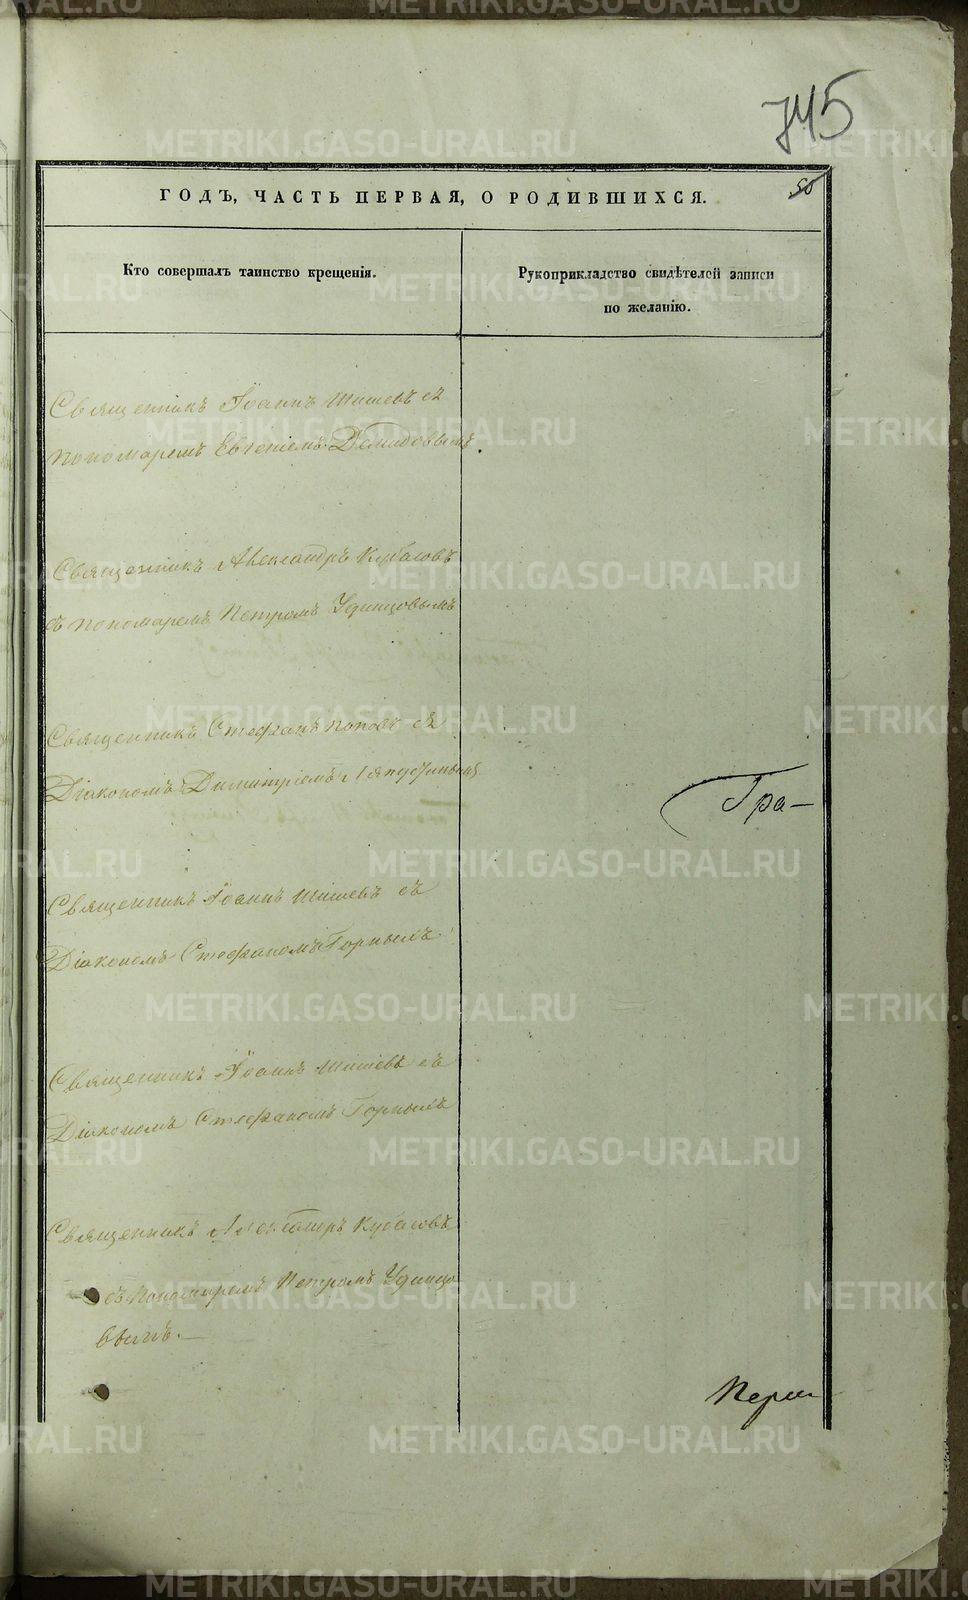 745
ГОДЪ, ЧАСТЬ ПЕРВАЯ, О РОДИВШИХСЯ.
50
Кто совершалъ таинство крещенія.
Рукоприкладство свидѣтелей записи
по желанію.
Священникъ Іоаннъ Шишевъ съ
пономаремъ Евгеніемъ Демидовымъ
Священникъ Александръ Кубасовъ
съ пономаремъ Петромъ Удинцовымъ
Священникъ Стефанъ Поповъ съ
Діакономъ Димитріемъ Ляпустинымъ
Гра-
Священникъ Іоаннъ Шишевъ съ
Діакономъ Стефаномъ Горнымъ
Священникъ Іоаннъ Шишевъ съ
Діакономъ Стефаномъ Горнымъ
Священникъ Александръ Кубасовъ
съ пономаремъ Петромъ Удинцо
вымъ.
METRIKI.GASO-URAL.RU